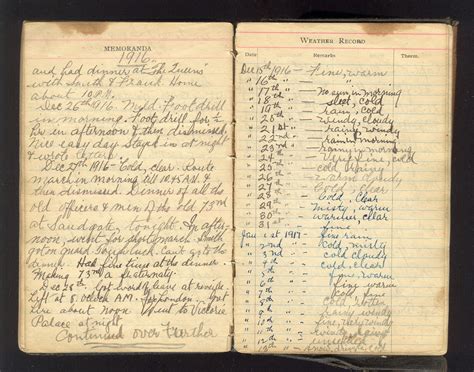 MEMORANDA
1916.
and had dinner at "The Queens"
with Smith & Prauk Home
about 10 P.M.
Dec 26th 1916. Mild. Foot drill
in morning. Foot drill for ½
hr in afternoon & then dismissed
Nice easy day stayed in at night
& wrote letters.
Dec 27th 1916 - Cold, clear. Route
march in morning till and
then dismissed. Dinner of all the
old officers & men of the old 73rd
at Sandgate, tonight. In after-
noon, went for short march. Smith
go on guard. Can't go to the
dinner. Had fine time at the dinner
73rd a
Dec 28th got word of leave at reveille
Left at 8 o'clock A.M. for London. Got
there about noon. Went to Victoria
Palace at night
Continued over Further
WEATHER RECORD
Date Remarks
Dec 15th 1916 - Fine, warm
" 16th "
" 17th " - No sun in morning
" 18th " - sleet, cold
" 19th " - rain, cold
" 20 " - windy, cloudy
" 21st " - rainy, windy
" 22 " - rain in morning
" 23 " - rainy in morning
" 24 " - Very fine, cold
" 25 " - cold, rainy
" 26 " - warm
" 27 " - Cold, clear
" 28 " - Cold, clear
" 29 " - Misty, warm
" 30 " - warmer, clear
" 31 " - fine
Jan 1st 1917 - fine rain
" 2nd " - Cold, misty
" 3rd " - cold cloudy
" 4th " - cold, clear
" 5th " - fine
" 6th " - fine warm
" 7th " - fine cold
" 8th " - cold
" 9th " - rainy, windy
" 10th " - fine, windy
" 11th " - rainy
" 12th " - unsettled
" 13th " -